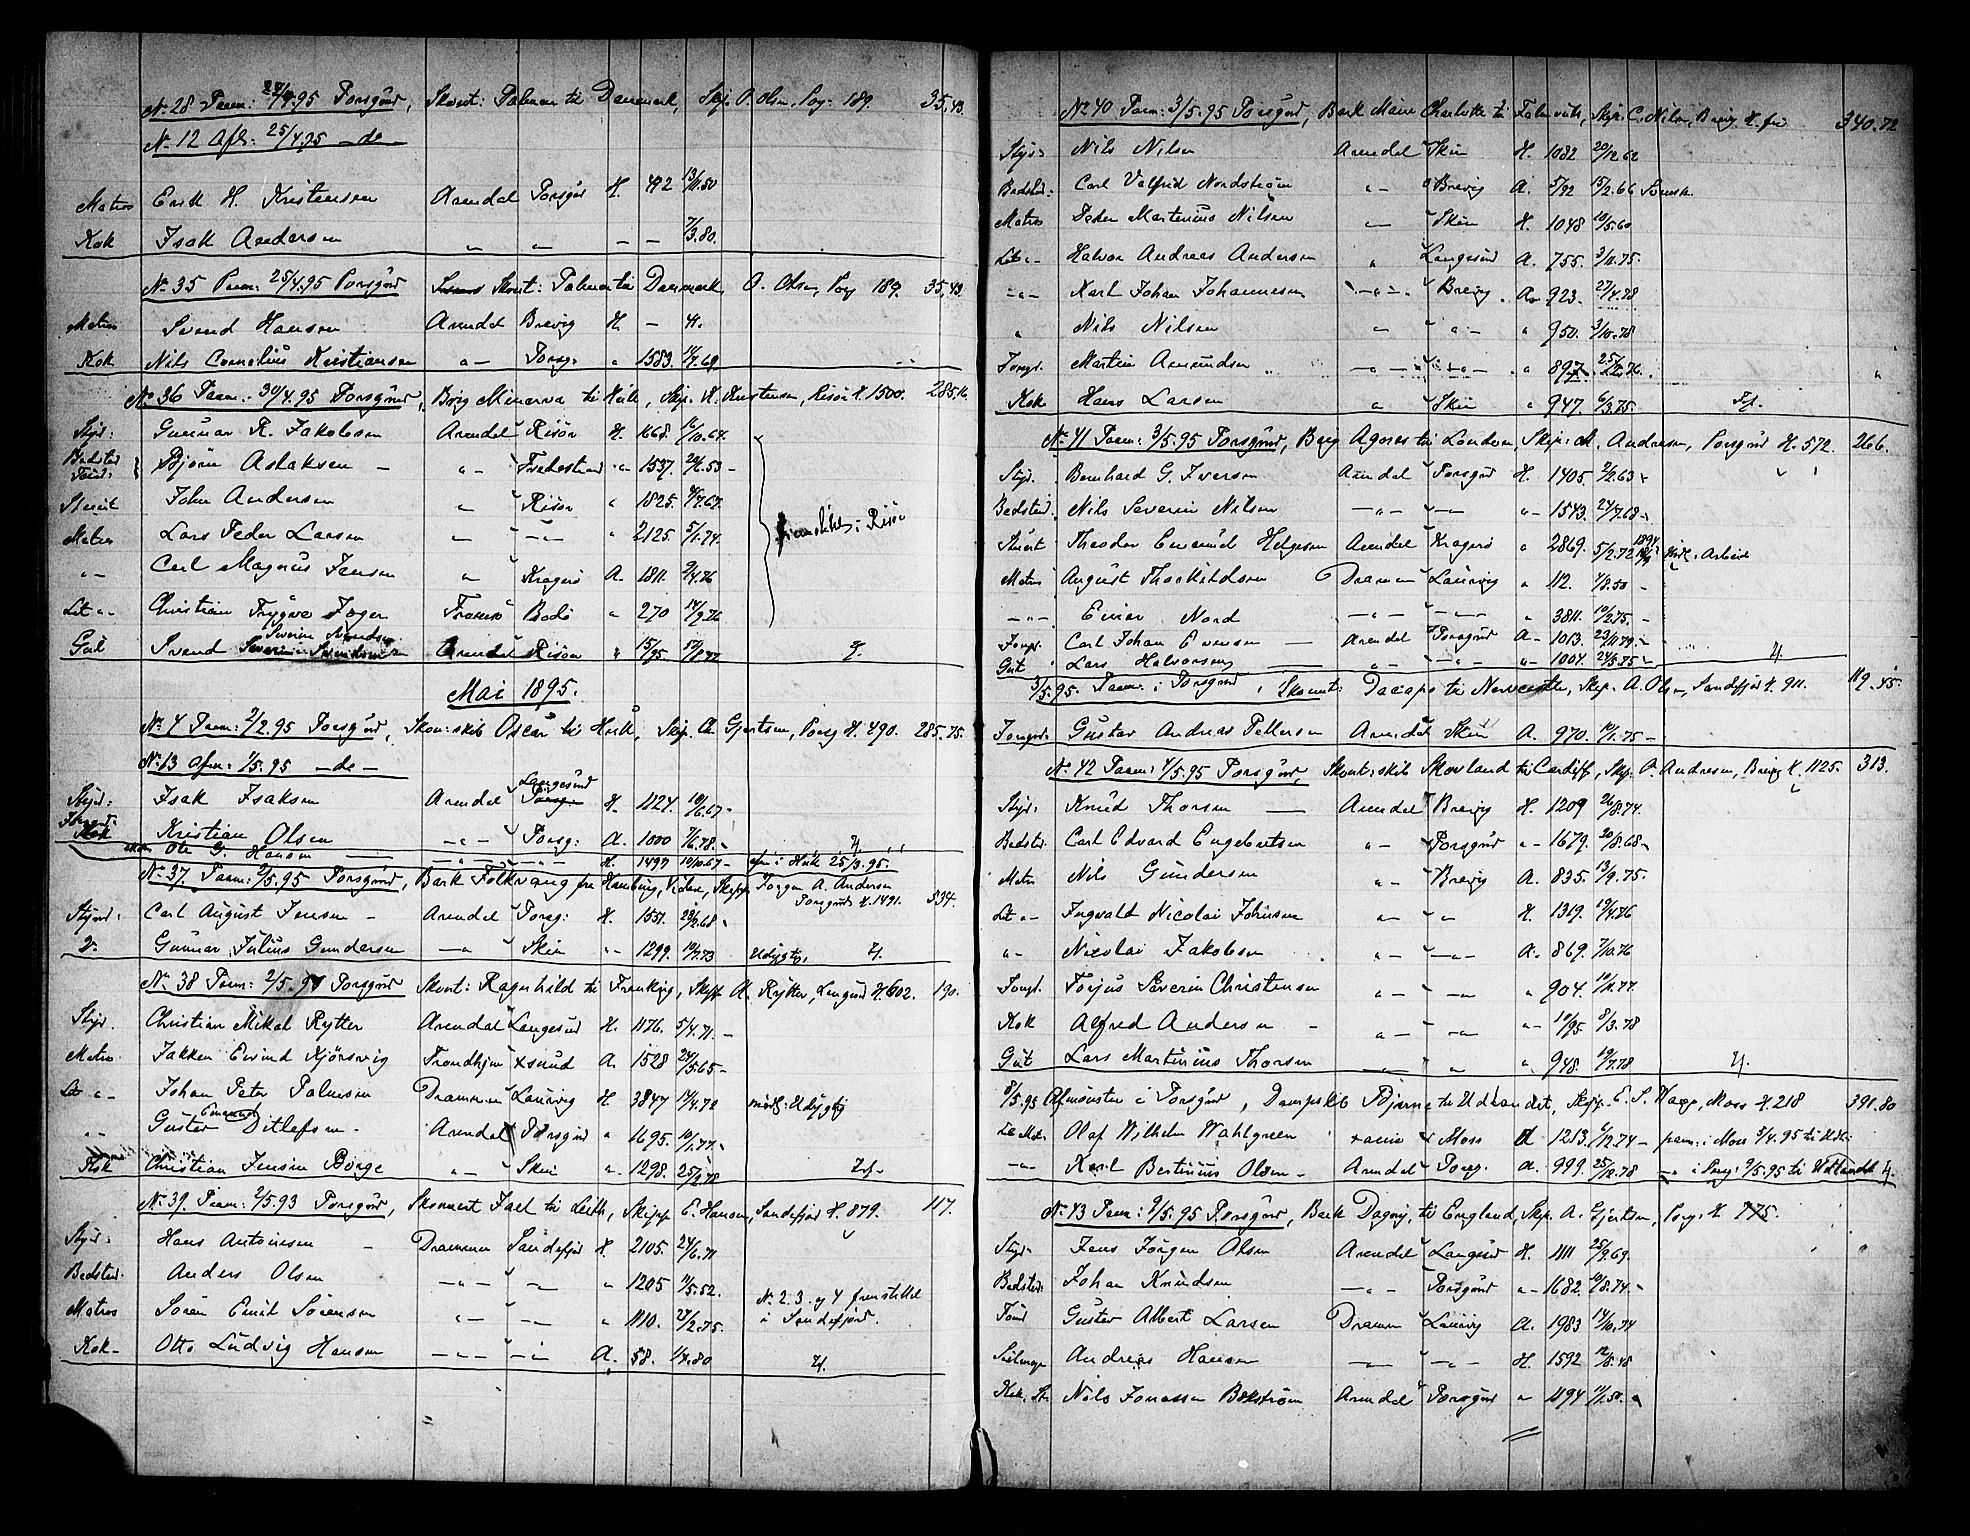 No 28 Paam: 22/4.95 Porsgrund, Skont: Palmen til Danmark, Skip. O. Olsen, Pors: 189. 35,43
No 12 Afm: 25/4.95 — de —
Matros Erik H. Kristensen Arendal Porsgrd H. 492 13/11.50
Kok Isak Andersen " " — — 7/3.80.
No 35 Paam: 25/4.95 Porsgrd Skont: Palmen til Danmark, O. Olsen, Porsg 189. 35,43.
Matros Svend Hansen Arendal Brevig H. — 41.
Kok Nils Cornelius Kristiansen " — Porsg: " 1583.
No 36 Paam: 30/4.95 Porsgrund, Brig Minerva til Hull, Skip. H. Kristensen, Risør H 1500. 285,16
Styrd: Gunnar R. Jakobsen Arendal Risør H. 1668. 16/10.64.
Badstd Tømd: Bjørn Aslaksen — " — 1537.
Stuert John Andersen " Risør " 1825.
Matros Lars Peder Larsen " — " — " 2125. 5/1.74.
" — Carl Magnus Jensen " Kragerø A. 1811. 9/4.76
Let " — Christian Trygve Bodø " 270 14/9.76
Gut Svend Severin Svendsen Arendal Risør " 15/95.
fremstillet i Risør
Mai 1895.
No 4 Paam: 2/2.95 Porsgrd, Skon: skib Oscar til Hull, Skip. Chr Gjertsen, Porsg H. 490. 285.75.
No 13 Afm: 1/5.95 — de —
Styrd: Isak Isaksen Arendal Langesund H. 1124. 10/6.67 —
Kok Kristian Olsen " — Porsg: A. 1000 7/6.78. —
Ole G. Hansen — " — " — H. 1497 19/10.67 — afm i Hull 25/3.95.
No 37 Paam: 2/5.95 Porsgrund, Bark Folkvang fra Hamburg, Videre, Skipp Jørgen A. Andersen Porsgrd H. 1491. 534.
Styrd: Carl August Jensen — Arendal Porsg: H. 1551. 23/2.68
2. Gunnar Julius Gundersen — " Skien " — 1299. 19/7.73 Udygtg.
No 38 Paam: 2/5.95 Porsgrund Skont: Ragnhild til Skipp A. Rytter, Langesd H. 602. 190.
Styrd. Christian Mikal Rytter Arendal Langesund H. 1176. 5/4.71. —
Matros Jakken Eivind Kjørsvig Trondhjem Xsund A. 1528 24/5.65 —
Let " — Johan Peter Palmesen Drammen Laurvig H. 3847 17/4.72 Udygtig
" — Gustav Emanuel Ditlefsen — Arendal Porsgrd " 1695. 10/1.77. —
Kok Christian Jensen Børge " — Skien " 1298. 25/9.78
No 39. Paam: 2/5.93 Porsgrd, Skonnert Fact til Leith, Skipp E. Hansen, Sandefjord H. 879. 117.
Styrd: Hans Antonisen — Drammen Sandefjord H. 2105. 24/6.71
Badstd. Anders Olsen — " — " — " 1205 11/5.52.
Matros Søren Emil Sørensen " — " — " 1110. 27/2.75.
No 2. 3. og 4 fremstillet i Sandefjord.
Kok — Otto Ludvig Hansen — " — " — A. 58. 1/4.80
No 40 Paam: 3/5.95 Porsgrd, Bark Maire Charlotte til Falmouth, Skip. C. Nilsen, Brevig H. fri 340.72
Styr: Nils Nilsen Arendal Skien H. 1032 20/12.62
Badstd: Carl Valfrid Nordstrøm " — Brevig A. 5/92 15/2.66 Svensk.
Matros Peder Martinius Nilsen " — Skien H. 1048 10/5.60
Let " — Halvor Andreas Andersen " Langesund A. 755. 3/11.75.
— " — Karl Johan Johannesen — " — Brevig A. 923. 27/4.78
" Nils Nilsen — " — " — " 950. 3/10.78
Jungd. Martin Amundsen — " — — " — " 897.
Kok Hans Larsen " Skien " 947. 6/3.75.
No 41 Paam: 3/5.95 Porsgrund, Brig Agnes til London, Skip. M. Andresen, Porsgrd H. 572. 266.
Styr. Bernhard G. Iversen Arendal Porsgrd H. 1405. 2/2.63 —
Badstd. Nils Severin Nilsen — " — — " — " — 1543. 24/7.68 —
Stuert Theodor Emanuel Helgesen Arendal Kragerø " 2869. 5/2.72 Arbeid
Matros August Thorkildsen Drammen Laurvig " 112. 1/2.50 —
— " — Einar Nord — " — — " — " 3811. 10/2.75. —
Jungd. Carl Johan Evensen — Arendal Porsgrd A — 1013. 23/11.79. —
Gut Lars Halvorsen — " — — " — " — 1004. 24/5.75 —
3/5.95. Paam: i Porsgrd, Skonnt: Dacapo til Newcastle, Skip. A. Olsen, Sandefjord H. 911. 119.45.
Jungmd. Gustav Andreas Pettersen Arendal Skien A. 970. 10/1.75 —
No 42 Paam: 4/5.95 Porsgrund, Skont: skib Skovland til Cardiff, Skip. O. Andresen, Brevig H. 1125. 313.
Styrd: Knud Thorsen — Arendal Brevig H. 1209 26/8.74.
Badstd. Carl Edvard Engebretsen " — Porsgrd " — 1679. 20/8.68 —
Matros Nils Gundersen " — Brevig A. 835. 13/9.75.
Let " — Ingvald Nicolai Johnsen " — " H. 1319. 19/4.76
" — Nicolai Jakobsen " — — " — A. 869. 7/10.76
Jungd. Torjus Severin Christensen " — — " — " 904. 10/11.77.
Kok Alfred Andersen — " — — " " — 10/95 8/3.78
Gut Lars Martinius Thorsen — " " 948. 19/7.78
8/5.95 Afmønster i Porsgrd, Dampskib Bjerne til Udlandet, Skip. E. S. Kapp, Moss H. 218 391.80
Let Mat. Olaf Wilhelm Wahlgreen Moss A 1213. 6/12.74 — paam: i Moss 5/4.95 til Udl:
— " — Karl Bertinius Olsen — Arendal Porsg. A. 999. 25/12.78 — " i Porsg: 9/5.95 til Udlandet
No 43 Paam: 9/5.95 Porsgrund, Bark Dagny, til England, Skip. A. Gjertsen, Porsg: H 775.
Styr. Jens Jørgen Olsen Arendal Langesund H. 1111 25/9.69.
Badstd: Johan Knudsen — " — Porsgrund " — 1682. 10/8.74. —
Tømd Gustav Albert Larsen Drammen Laurvig A. 1983 14/10.74
Seilmager Andreas Hansen — " — — " — H. 1592 12/8.48
Kok, St. Nils Jonassen Bækstrøm Arendal Porsgrd " 1194 11/1.50.